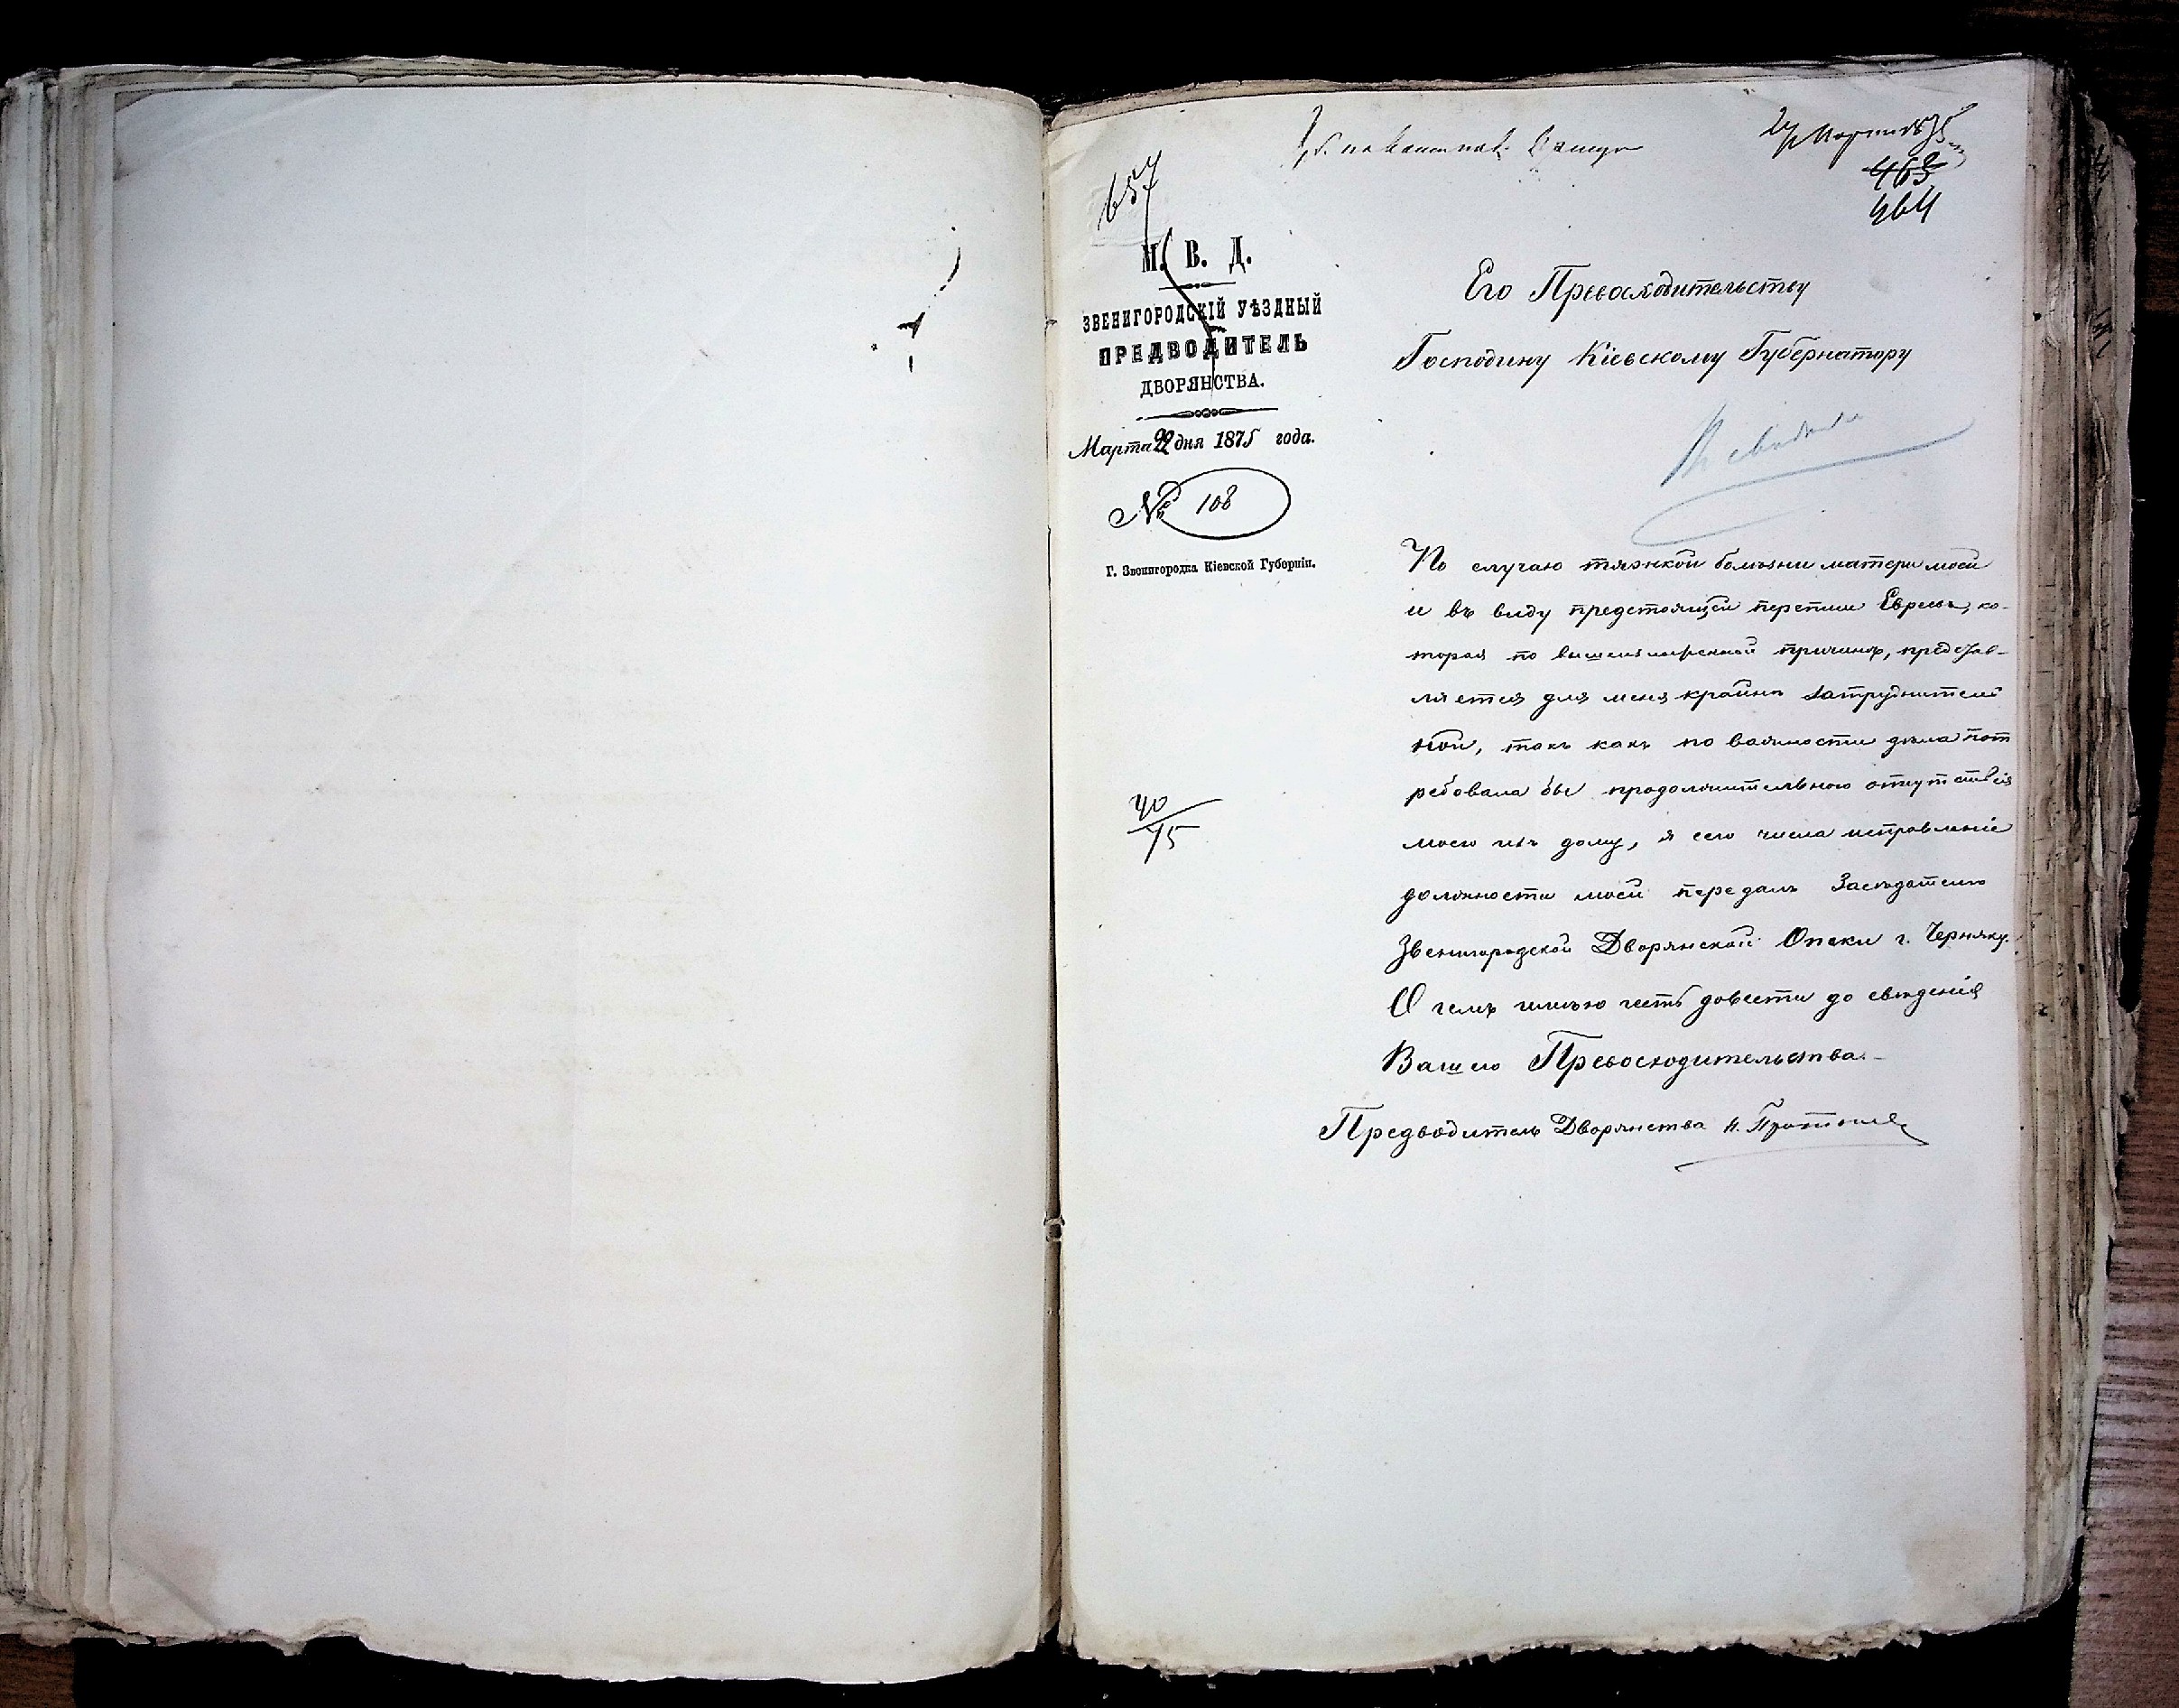 24 Марта 1875
463
464
657
М. В. Д.
ЗВЕНИГОРОДСКІЙ УѢЗДНЫЙ
ПРЕДВОДИТЕЛЬ
ДВОРЯНСТВА.
Марта 22 дня 1875 года.
№ 108
Г. Звенигородка Кіевской Губерніи.
40
75
Его Превосходительству
Господину Кіевскому Губернатору
По случаю тяжкой болѣзни матери моей
и въ виду предстоящей переписи Евреевъ, ко-
торая по вышеизложенной причинѣ, представ-
ляется для меня крайнѣ затруднитель
ной, такъ какъ по важности дѣла пот
ребовала бы продолжительного отсутствія
моего изъ дому, я сего числа исправленіе
должности моей передалъ Засѣдателю
Звенигородской Дворянской Опеки г. Черняку.
О чемъ имѣю честь довести до свѣденія
Вашего Превосходительства.-
Предводитель Дворянства Н.